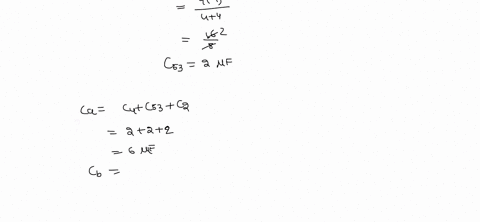 = 4(4) / 4+4
= 16 2 / 8
C53 = 2 μF
Ca = C4+C53+C2
= 2+2+2
= 6 μF
Cb =